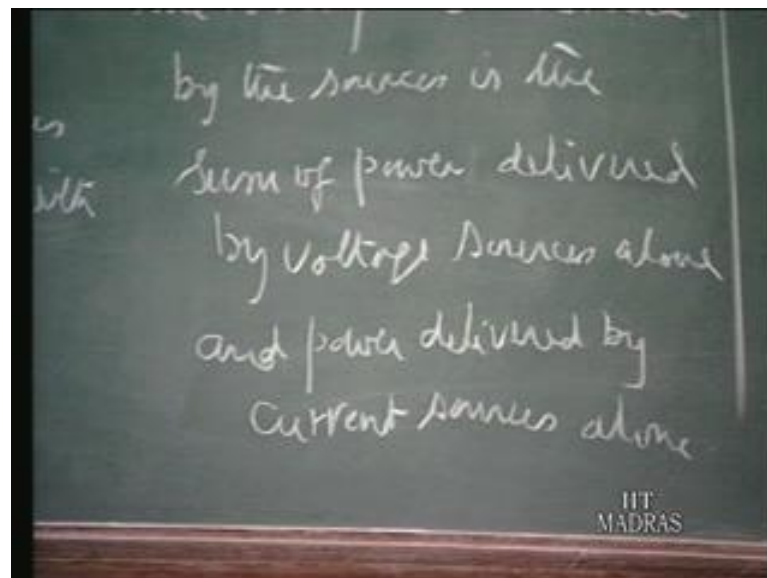 by the sources is the
sum of power delivered
by voltage sources alone
and power delivered by
current sources alone
IIT
MADRAS